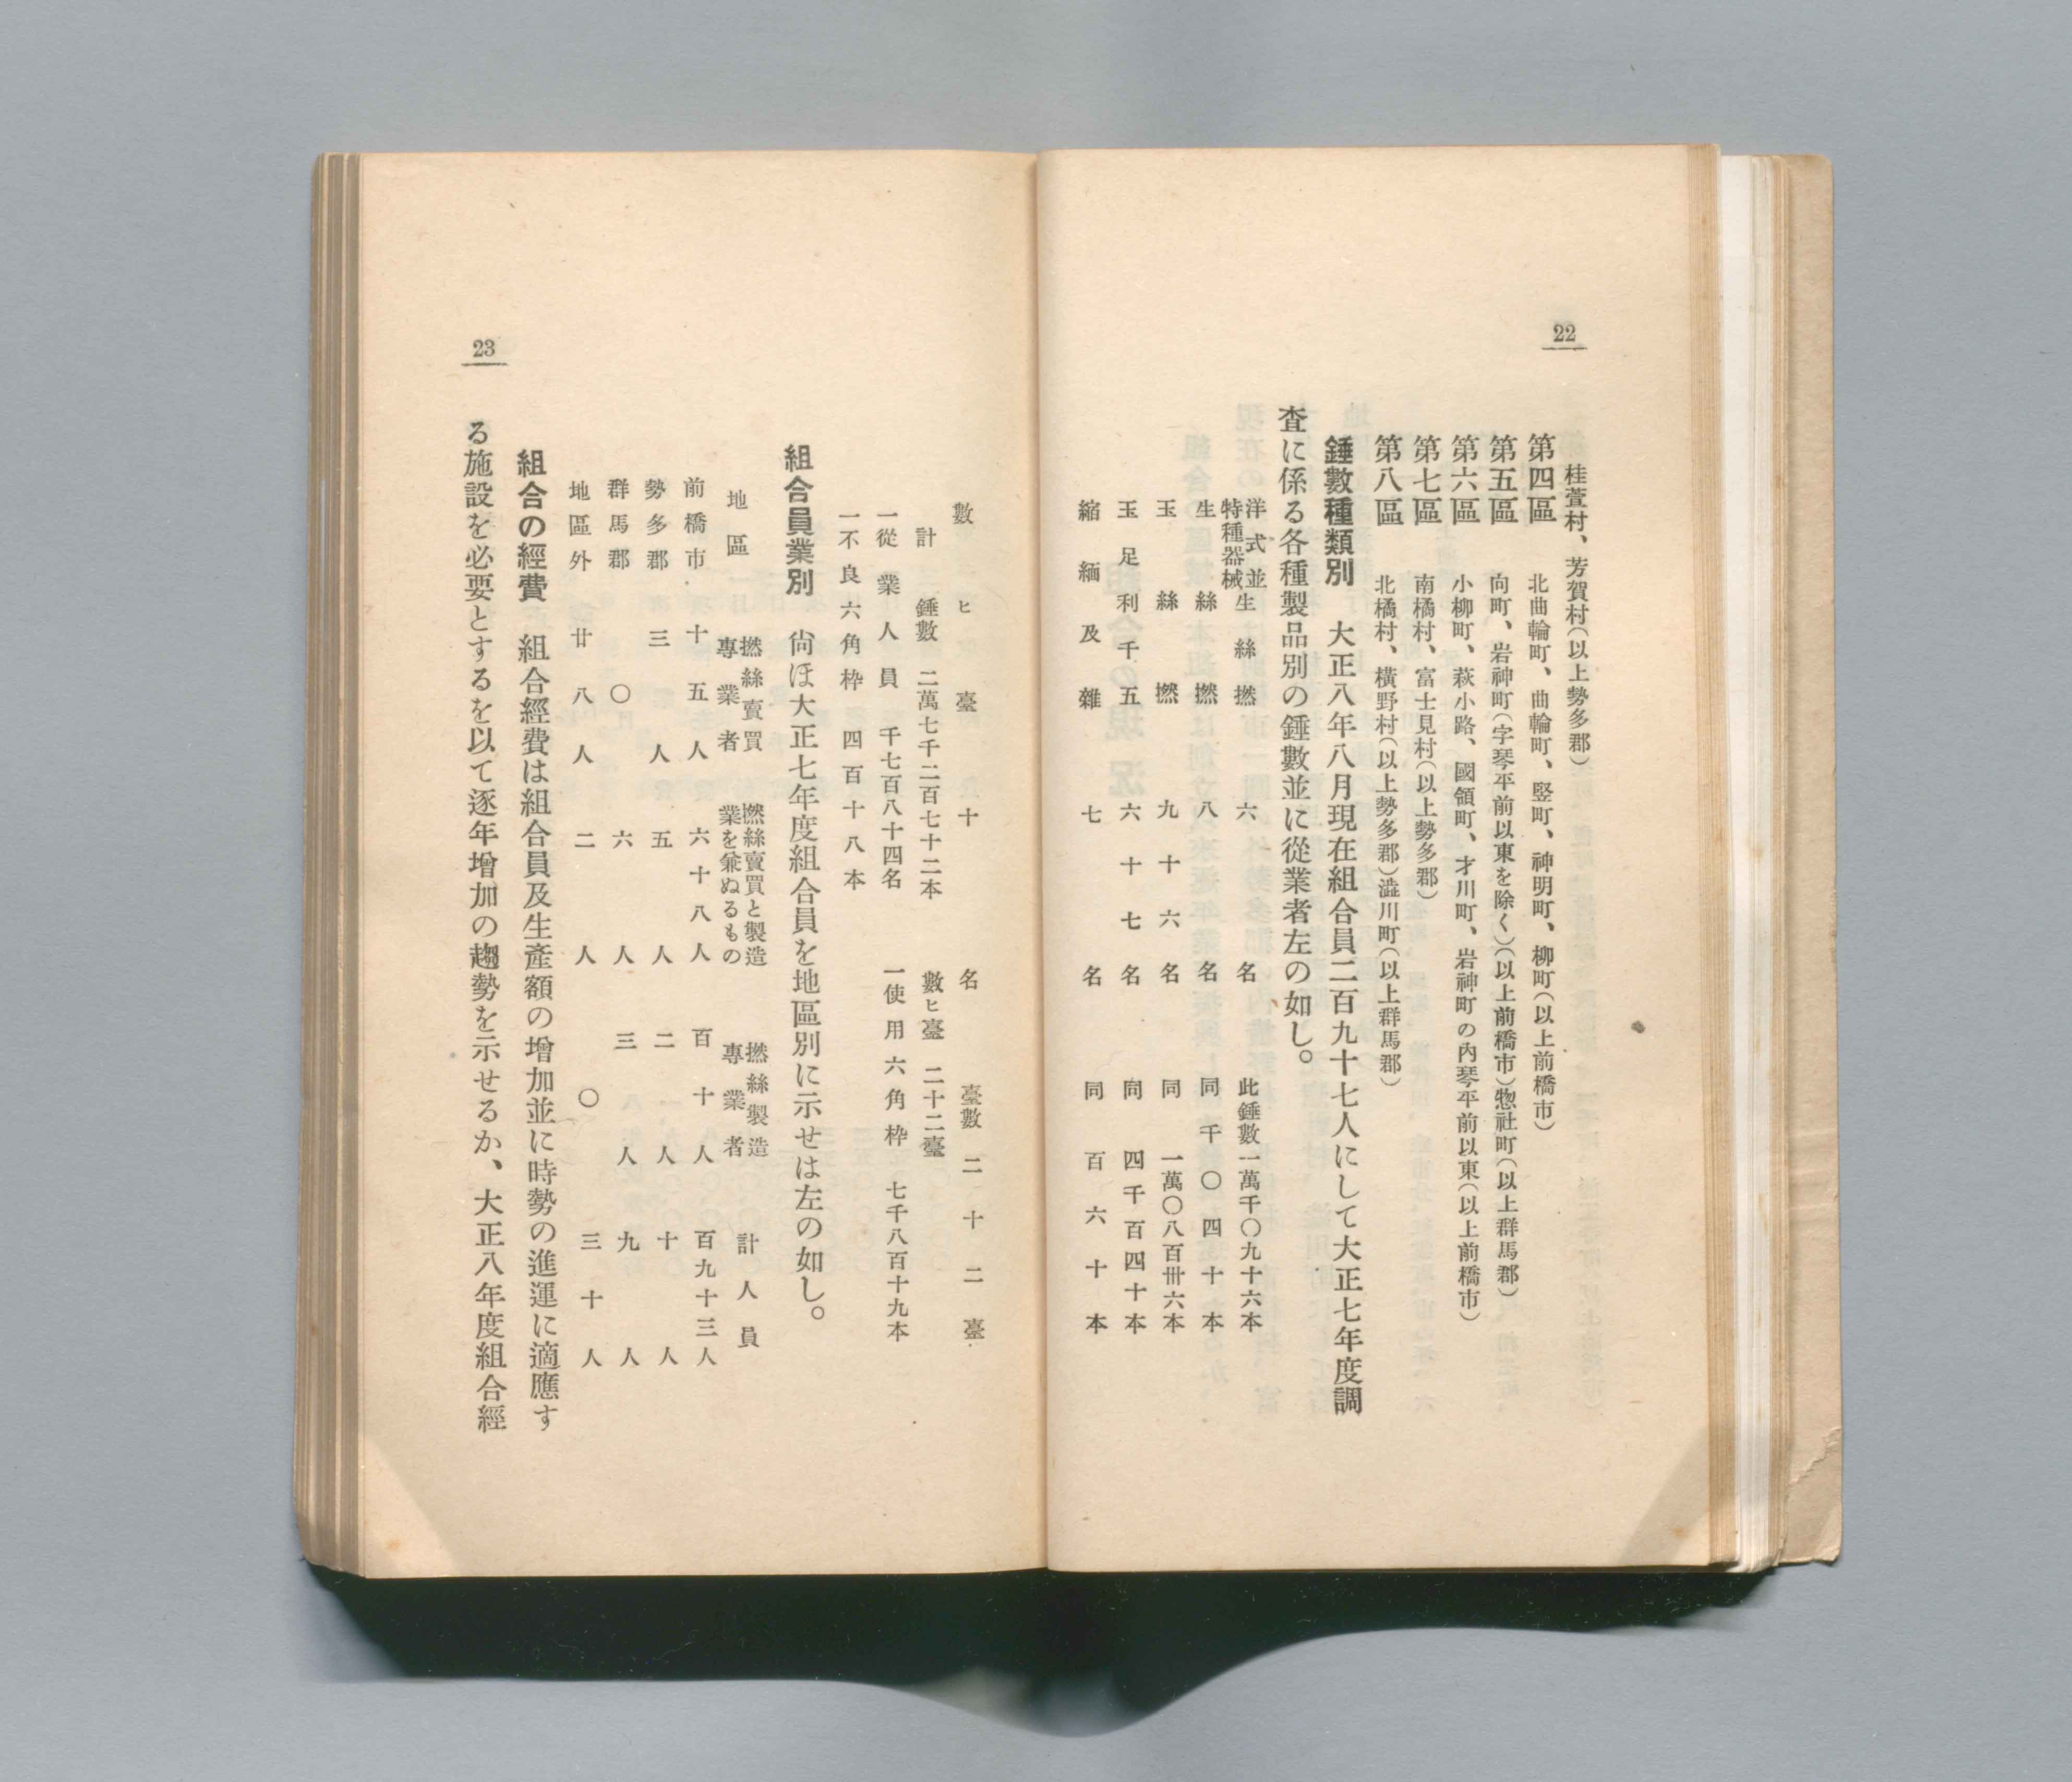 22
桂萱村、芳賀村(以上勢多郡)
第四區 北曲輪町、曲輪町、竪町、神明町、柳町(以上前橋市)
第五區 向町、岩神町(字琴平前以東を除く)(以上前橋市)惣社町(以上群馬郡)
第六區 小柳町、萩小路、國領町、才川町、岩神町の內琴平前以東(以上前橋市)
第七區 南橘村、富士見村(以上勢多郡)
第八區 北橘村、横野村(以上勢多郡)澁川町(以上群馬郡)
錘數種類別 大正八年八月現在組合員二百九十七人にして大正七年度調
査に係る各種製品別の錘數並に從業者左の如し。
洋式並特種器械 生絲撚 六名 此錘數一萬千〇九十六本
生絲撚 八名 同千〇四十本
玉絲撚 九十六名 同一萬〇八百卅六本
玉足利千五 六十七名 同四千百四十本
縮緬及雜 七名 同百六十本
數ヒ臺 十名 臺數二十二臺
計 錘數 二萬七千二百七十二本 數ヒ臺 二十二臺
一從業人員 千七百八十四名 一使用六角枠 七千八百十九本
一不良六角枠 四百十八本
組合員業別 尙ほ大正七年度組合員を地區別に示せは左の如し。
地區 撚絲賣買專業者 撚絲賣買と製造業を兼ぬるもの 撚絲製造專業者 計人員
前橋市 十五人 六十八人 百十人 百九十三人
勢多郡 三人 五人 二人 十人
群馬郡 〇 六人 三人 九人
地區外 廿八人 二人 〇 三十人
組合の經費 組合經費は組合員及生產額の增加並に時勢の進運に適應す
る施設を必要とするを以て逐年增加の趨勢を示せるか、大正八年度組合經
23